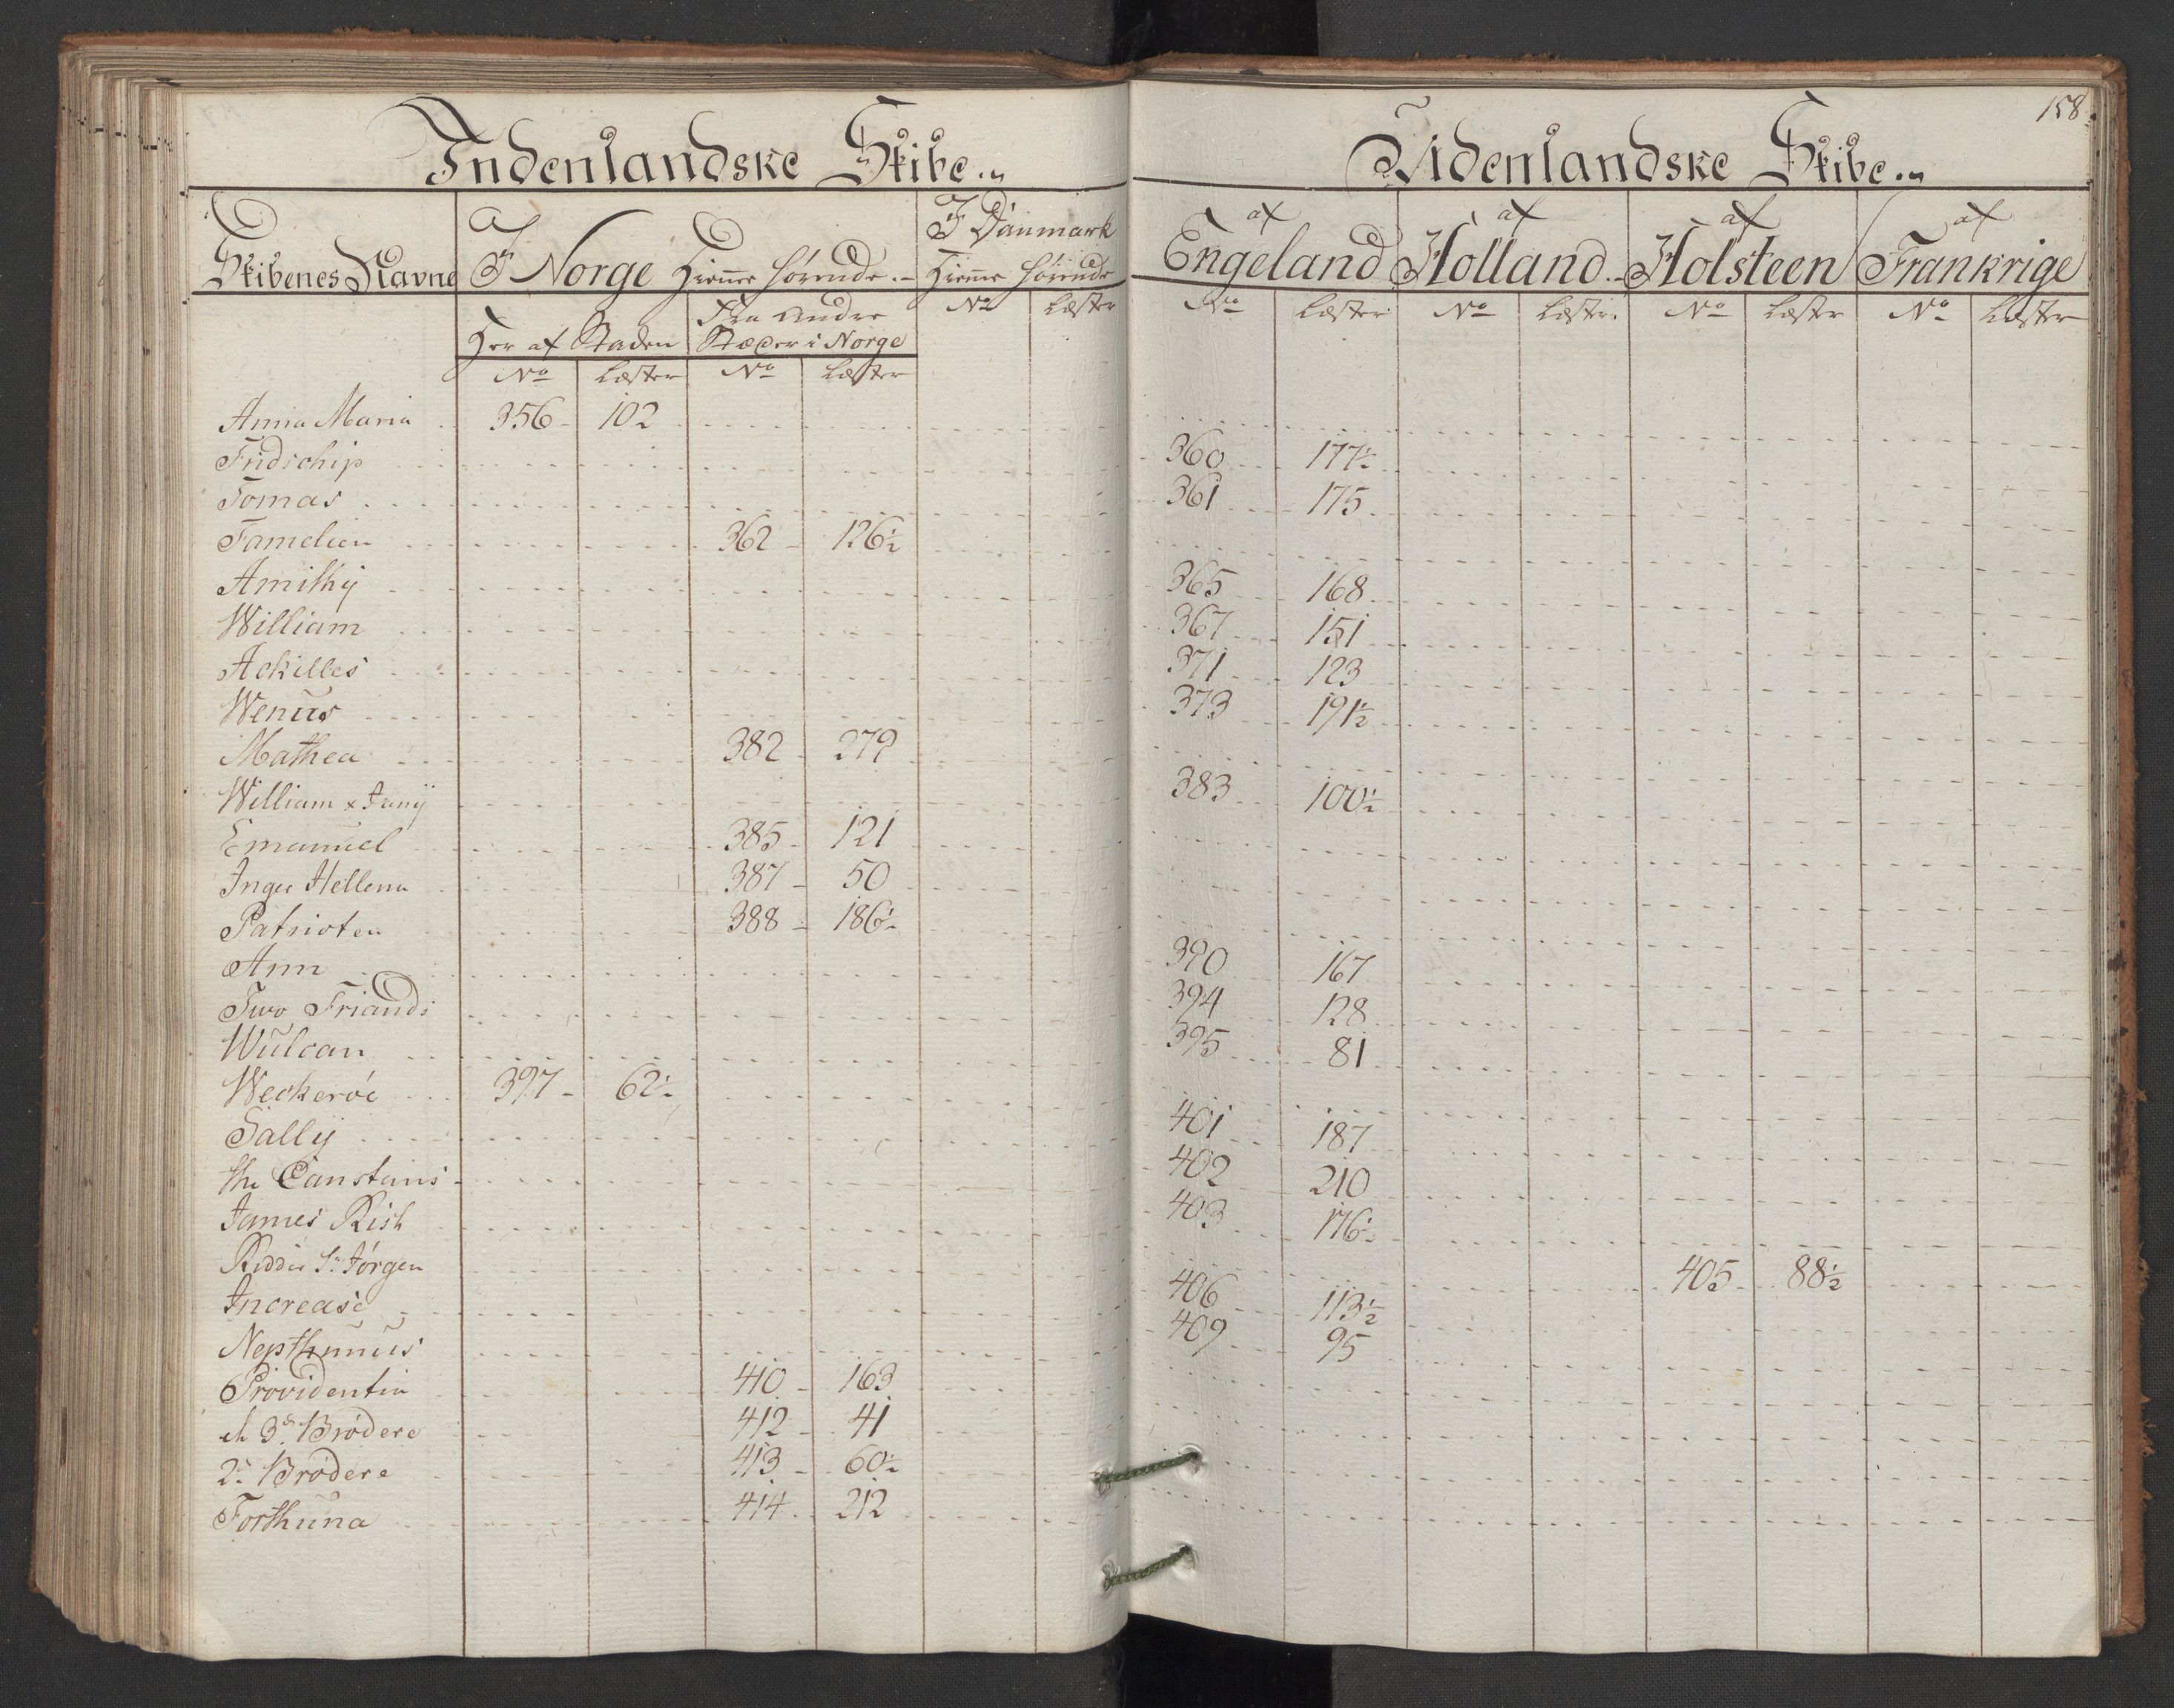 158.
Indenlandske Skibe
Udenlandske Skibe
Skibenes Navne
I Norge Hiemme hørende
I Danmark
Hiemme hørende
af Engeland
af Holland
af Holsteen
af Frankrige
Her af Staden
Fra Andre
Stæder i Norge
No Læster No Læster No Læster No Læster No Læster No Læster No Læster
Anna Maria 356 102
Fridschip 360 177½
Tomas 361 175
Famelien 362 126½
Amithÿ 365 168
William 367 151
Ackilles 371 123
Wenus 373 191½
Mathea 382 279
William & Janÿ 383 100½
Emanuel 385 121
Inger Hellena 387 50
Patrioten 388 186½
Ann 390 167
Two Friands 394 128
Wulcan 395 81
Weckerøe 397 62½
Sallÿ 401 187
the Constans 402 210
James Rish 403 176½
Ridder St Jørgen 405 88½
Increase 406 113½
Nepthunus 409 95
Providentia 410 163
de 3de Brødere 412 41
2de Brødere 413 60½
Forthuna 414 212